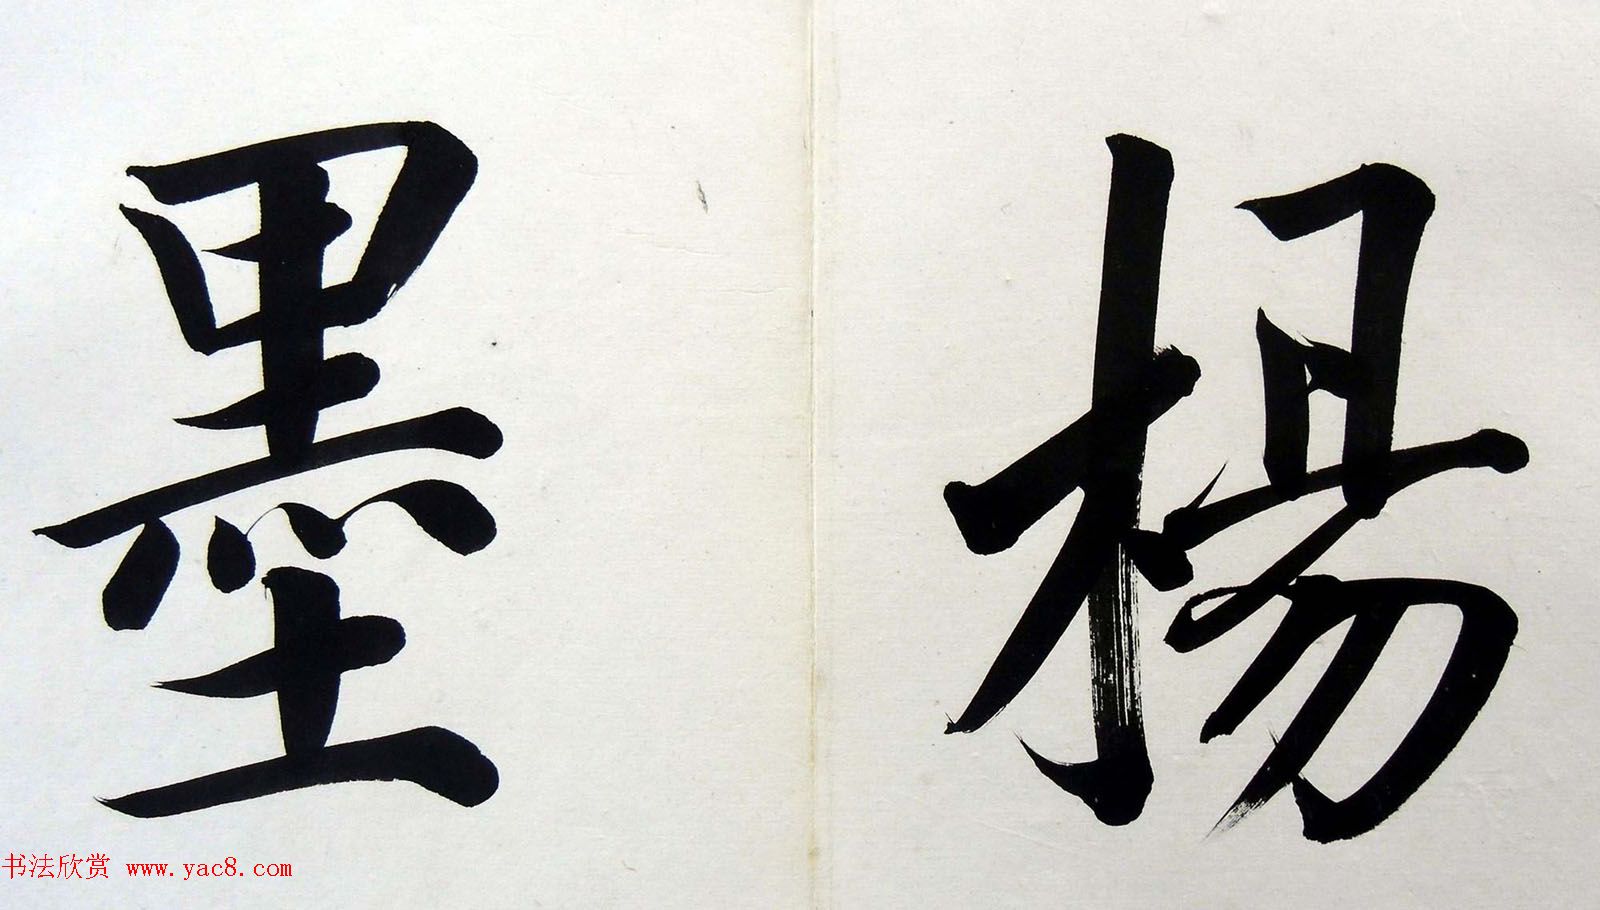 楊
墨
书法欣赏 www.yac8.com